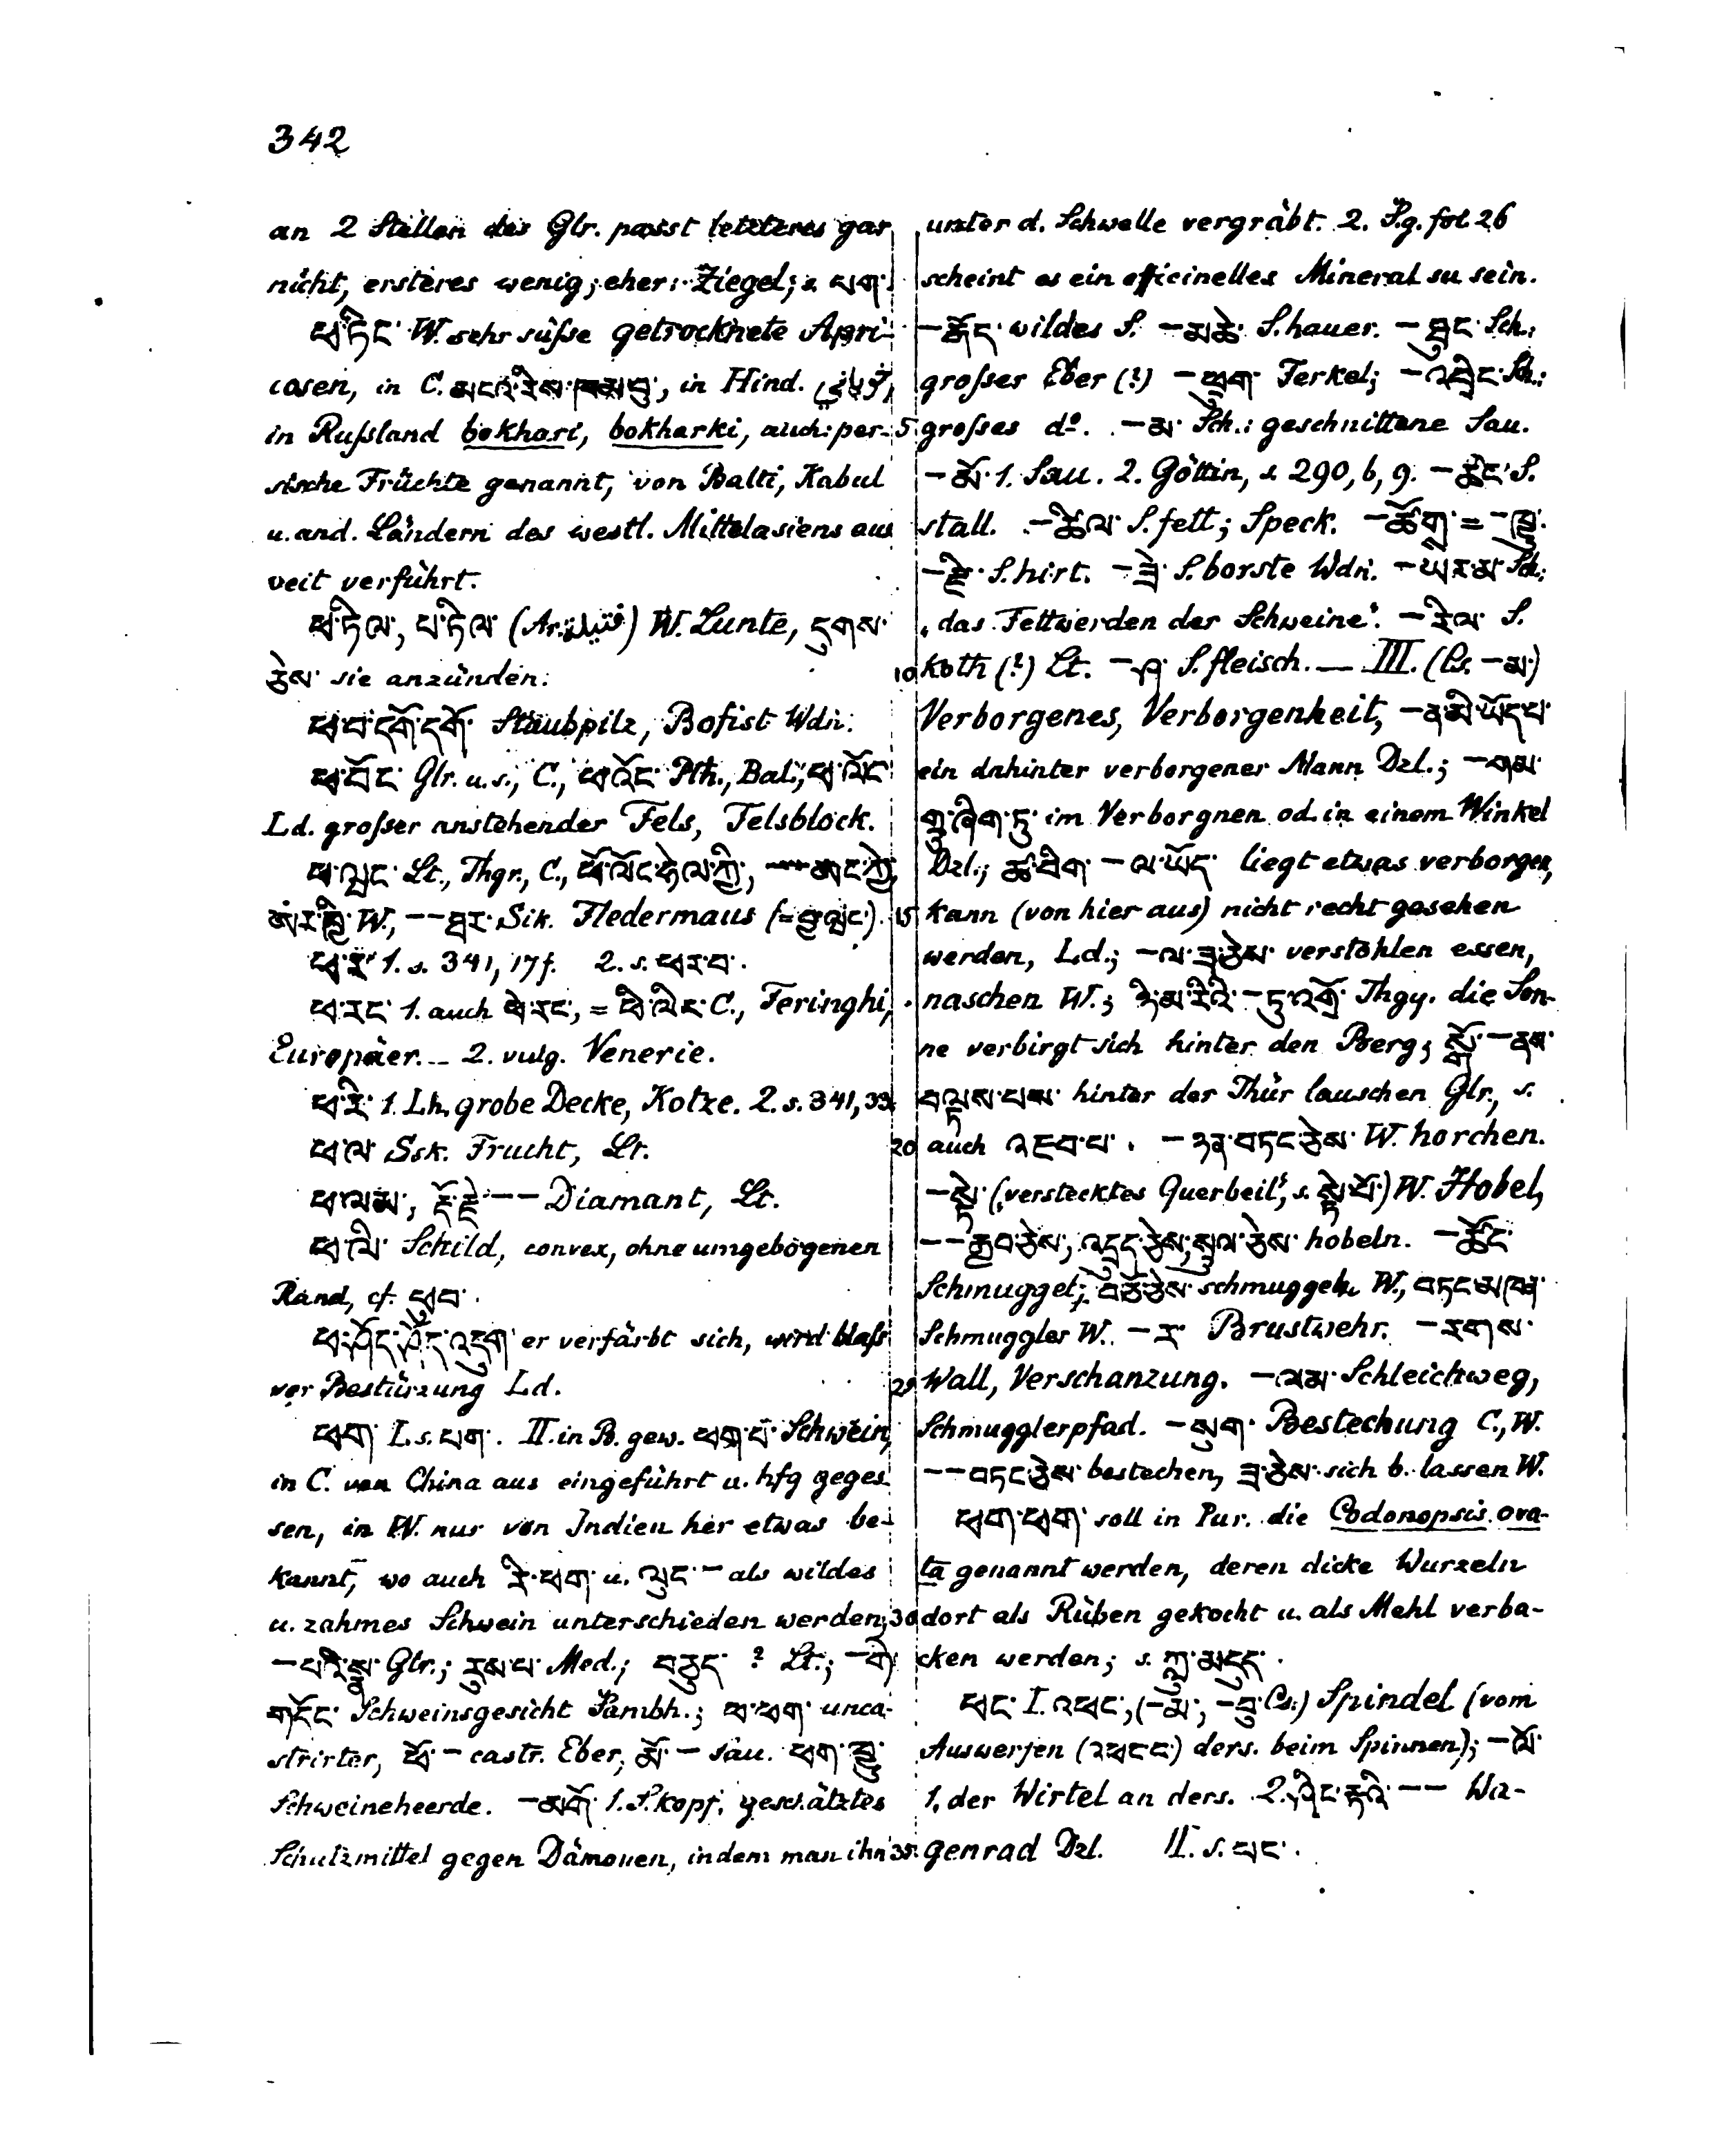 342
an 2 Stellen des Glr. passt letzteres gar
nicht, ersteres wenig; eher: Ziegel; s. པག་
ཕ་ཏིང་ W. sehr süße getrocknete Apri-
cosen, in C. མངའ་རིས་ཁམབུ་, in Hind.
in Rußland bokhari, bokharki, auch: per-
sische Früchte genannt, von Balti, Kabul
u. and. Ländern des westl. Mittelasiens aus
weit verführt.
ཕ་ཏིལ་, པ་ཏིལ་ (Ar. فتيل) W. Lunte, དུགས་
ཅེས་ sie anzünden.
ཕ་བ་དགོ་དགོ་ Staubpilz, Bofist Wdn.
ཕ་བོང་ Glr. u. s., C., ཕ་འོང་ Pth., Bal., ཕ་ལོང་
Ld. großer anstehender Fels, Felsblock.
ཕ་ལྭང་ Lt., Thgr., C.,
W., –– Sik. Fledermaus
ཕ་ར་ 1. s. 341, 17 f. 2. s. ཕར་བ་.
ཕ་རང་ 1. auch ཕེ་རང་, = ཕི་ལིང་ C., Feringhi,
Europäer. – 2. vulg. Venerie.
ཕ་རི་ 1. Lh. grobe Decke, Kotze. 2. s. 341, 33.
ཕ་ལ་ Ssk. Frucht, Lt.
ཕ་ལམ་, རྡོ་རྗེ་ –– Diamant, Lt.
ཕ་ལི་ Schild, convex, ohne umgebogenen
Rand, cf. ཕུབ་.
ཕ་ཤོད་ཤོད་འདུག་ er verfärbt sich, wird blaß
vor Bestürzung Ld.
ཕག་ I. s. པག་. II. in B. gew. ཕག་པ་ Schwein,
in C. von China aus eingeführt u. hfg geges-
sen, in W. nur von Indien her etwas be-
kannt, wo auch རི་ཕག་ u. ལུང་ – als wildes
u. zahmes Schwein unterschieden werden;
– Glr.; རུས་པ་ Med.; བཅུད་ ? Lt.; – གི་
གདོང་ Schweinsgesicht Sambh.; ཕ་ཕག་ unca-
strirter, ཕོ་ – castr. Eber, མོ་ – Sau. ཕག་ཁྱུ་
Schweineheerde. – མགོ་ 1. S.kopf, geschätztes
Schutzmittel gegen Dämonen, indem man ihn
unter d. Schwelle vergräbt. 2. S.g. fol. 26
scheint es ein officinelles Mineral zu sein.
– རྒོད་ wildes S. – མཆེ་ S.hauer. – ཐུང་ Sch.:
großer Eber (?) – ཕྲུག་ Ferkel; – འབྲིང་ Sch.:
5 großes do. – མ་ Sch.: geschnittene Sau.
– མོ་ 1. Sau. 2. Göttin, s. 290, b, 9. – ཚང་ S.
stall. – ཚིལ་ S. fett; Speck. – ཚོགས་ = – ཁྱུ་.
– རྫི་ S.hirt. – ཟེ་ S.borste Wdn. – Sch.:
‚das Fettwerden der Schweine‘. – རིལ་ S.
10 koth (?) Lt. – ཤ་ S.fleisch. — III. (Cs. – མ་)
Verborgenes, Verborgenheit, – ན་མི་ཡོད་པ་
ein dahinter verborgener Mann Dzl.; –
གྲུ་ཞིག་ཏུ་ im Verborgnen od. in einem Winkel
Dzl.; ཅཱ་ཞིག་ – ལ་ཡོད་ liegt etwas verborgen,
15 kann (von hier aus) nicht recht gesehen
werden, Ld.; – ལ་ཟ་ཅེས་ verstohlen essen,
naschen W.; ཉི་མ་རིའི་ – ཏུ་འགྲོ་ Thgy. die Son-
ne verbirgt sich hinter den Berg; སྒོ་ – ནས་
བལྟས་པས་ hinter der Thür lauschen Glr., s.
20 auch འཇབ་པ་. – ཉན་བཏང་ཅེས་ W. horchen.
– སྟེ་ (‚verstecktes Querbeil‘, s. སྟེ་པོ་) W. Hobel,
–– རྒྱབ་ཅེས་, འདྲུད་ཅེས་, ཅེས་ hobeln. – ཚོང་
Schmuggel; བཅོ་ཅེས་ schmuggeln W., བཏངམཁན་
Schmuggler W. – ར་ Brustwehr. – རགས་
25 Wall, Verschanzung. – ལམ་ Schleichweg,
Schmugglerpfad. – སུག་ Bestechung C., W.
–– བཏང་ཅེས་ bestechen, ཟ་ཅེས་ sich b. lassen W.
ཕག་ཕག་ soll in Pur. die Codonopsis ova-
ta genannt werden, deren dicke Wurzeln
30 dort als Rüben gekocht u. als Mehl verba-
cken werden; s. ཀླུ་མདུད་.
ཕང་ I. འཕང་, (– མ་, – བུ་ Cs.) Spindel (vom
Auswerfen (འཕང་) ders. beim Spinnen); – ལོ་
1. der Wirtel an ders. 2. ཤིང་རྟའི་ –– Wa-
35 genrad Dzl. II. s. པང་.